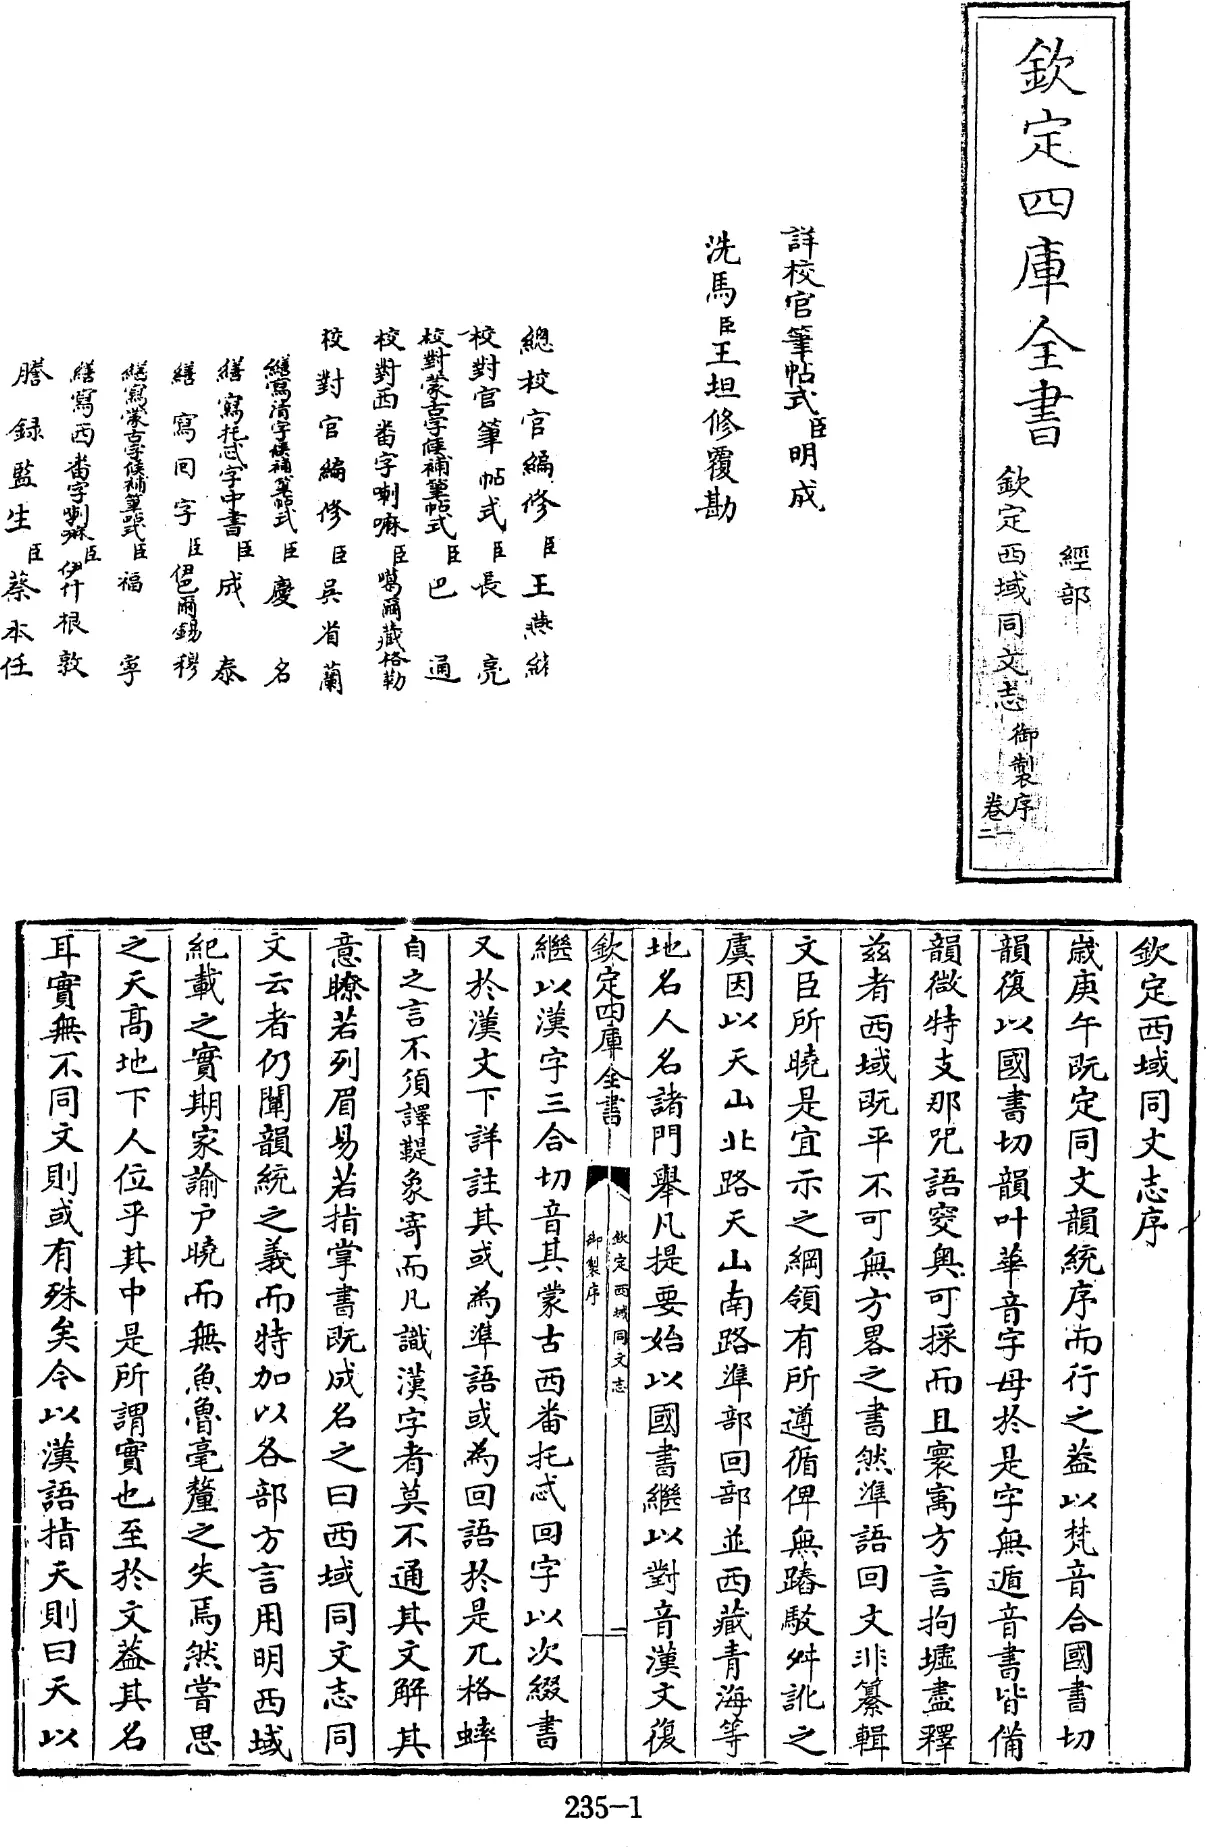 欽定四庫全書
經部
欽定西域同文志
御製序
卷一
二
詳校官筆帖式臣明成
洗馬臣王坦修覆勘
總校官編修臣王燕緒
校對官筆帖式臣長亮
校對蒙古字候補筆帖式臣巴通
校對西畨字喇嘛臣噶爾藏格勒
校對官編修臣吳省蘭
繕寫清字候補筆帖式臣慶名
繕寫托忒字中書臣成泰
繕寫回字臣伊巴爾錫穆
繕寫蒙古字候補筆帖式臣福寧
繕寫西畨字喇嘛臣伊什根敦
謄録監生臣蔡本任
欽定西域同文志序
歲庚午既定同文韻統序而行之葢以梵音合國書切
韻復以國書切韻叶華音字母於是字無遁音書皆備
韻微特支那咒語窔奥可採而且寰寓方言拘墟盡釋
兹者西域既平不可無方畧之書然凖語回文非纂輯
文臣所曉是宜示之綱領有所遵循俾無踳駁舛訛之
虞因以天山北路天山南路凖部回部並西藏青海等
地名人名諸門舉凡提要始以國書繼以對音漢文復
欽定四庫全書
欽定西域同文志
御製序
一
繼以漢字三合切音其蒙古西畨托忒回字以次綴書
又於漢文下詳註其或為凖語或為回語於是兀格蟀
自之言不須譯鞮象寄而凡識漢字者莫不通其文解其
意瞭若列眉易若指掌書既成名之曰西域同文志同
文云者仍闡韻統之義而特加以各部方言用明西域
紀載之實期家諭户曉而無魚魯毫釐之失焉然嘗思
之天高地下人位乎其中是所謂實也至於文葢其名
耳實無不同文則或有殊矣今以漢語指天則曰天以
235-1